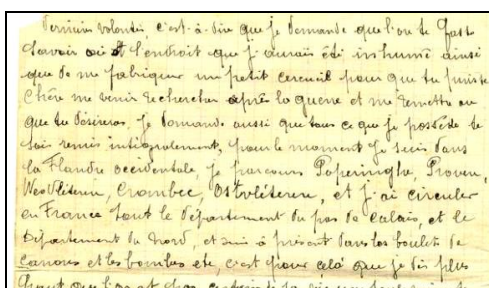 dernières volontés, c'est-à-dire que je demande que l'on te fasse
savoir où est l'endroit que j'aurais été inhumé ainsi
que de me fabriquer un petit cercueil pour que tu puisse
Chère me venir rechercher après la guerre et me remettre ou
que tu désireras. Je demande aussi que tous ce que je possède te
sois remis intégralement, pour le moment je suis dans
la Flandre occidentale, je parcours Poperinghe, Proven,
Westvleteren, Crombec, Ostvleteren, et j'ai circuler
en France tout le département du pas de Calais, et le
Département du Nord, et suis à présent dans les boulets de
canons et les bombes etc, c'est pour celà que je dis plus